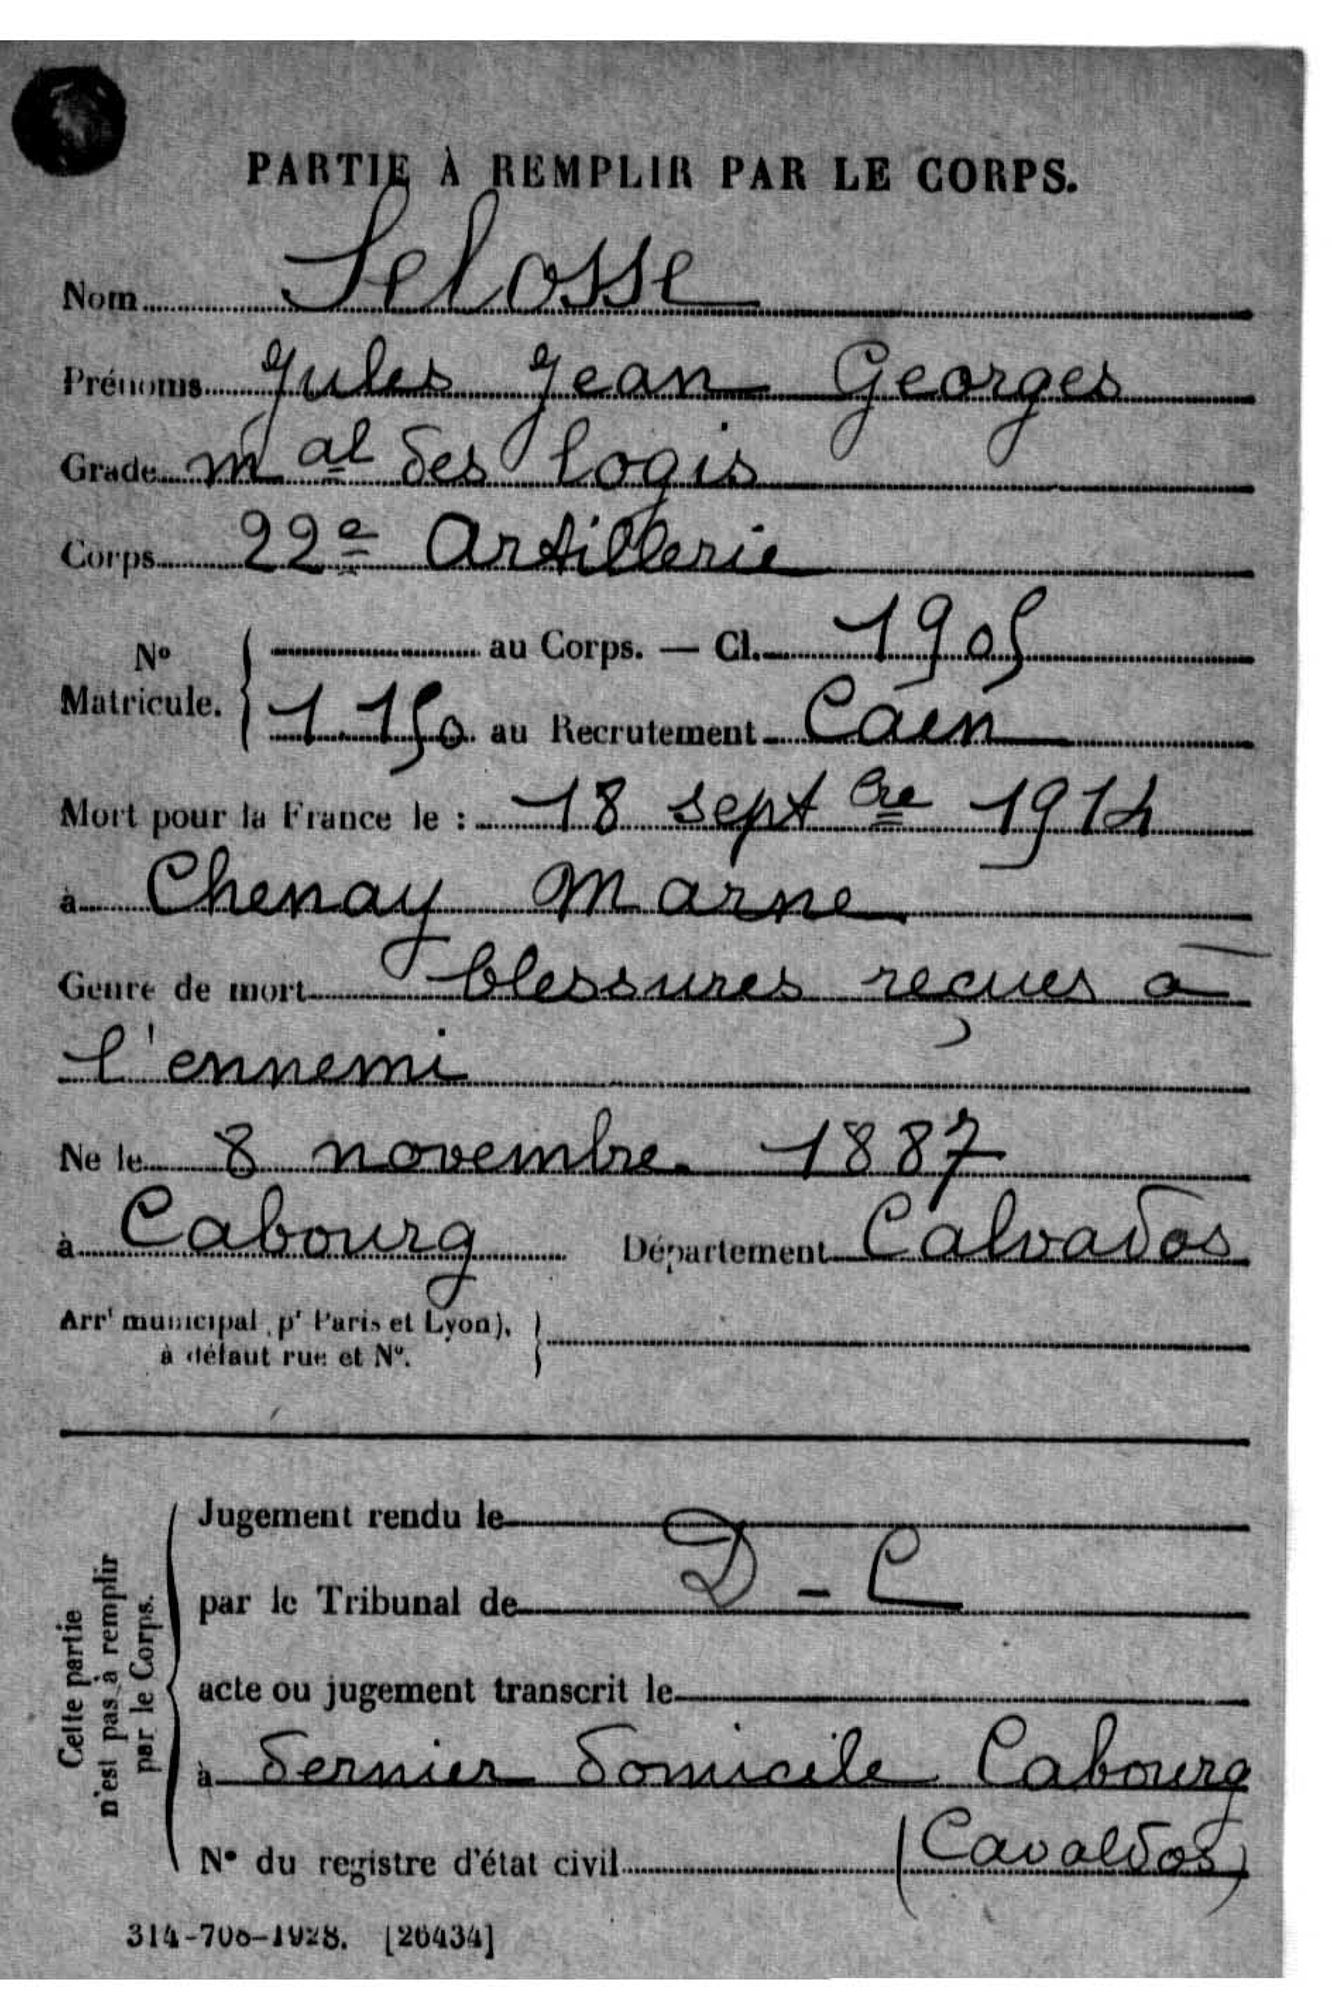 PARTIE À REMPLIR PAR LE CORPS.
Nom Selosse
Prénoms Jules Jean Georges
Grade mal des logis
Corps 22e Artillerie
No Matricule. { au Corps. — Cl. 1905
1.150 au Recrutement Caen
Mort pour la France le : 18 septbre 1914
à Chenay Marne
Genre de mort blessures reçues à
l'ennemi
Né le 8 novembre. 1887
à Cabourg Département Calvados
Arrt municipal (pr Paris et Lyon), }
à défaut rue et No.
Cette partie n'est pas à remplir par le Corps.
Jugement rendu le
par le Tribunal de D - C
acte ou jugement transcrit le
à dernier domicile Cabourg
No du registre d'état civil (Cavaldos)
314-708-1928. [26434]